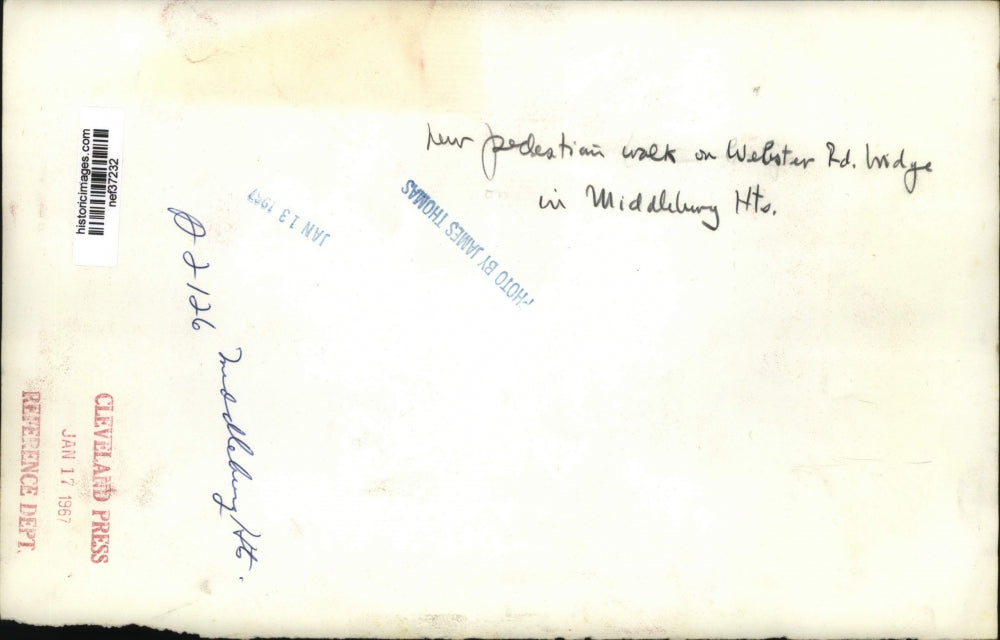 new pedestian walk on Webster Rd. bridge
in Middleburg Hts.
PHOTO BY JAMES THOMAS
JAN 13 1967
historicimages.com
nef37232
P 2-126 Middleburg Hts.
CLEVELAND PRESS
JAN 17 1967
REFERENCE DEPT.